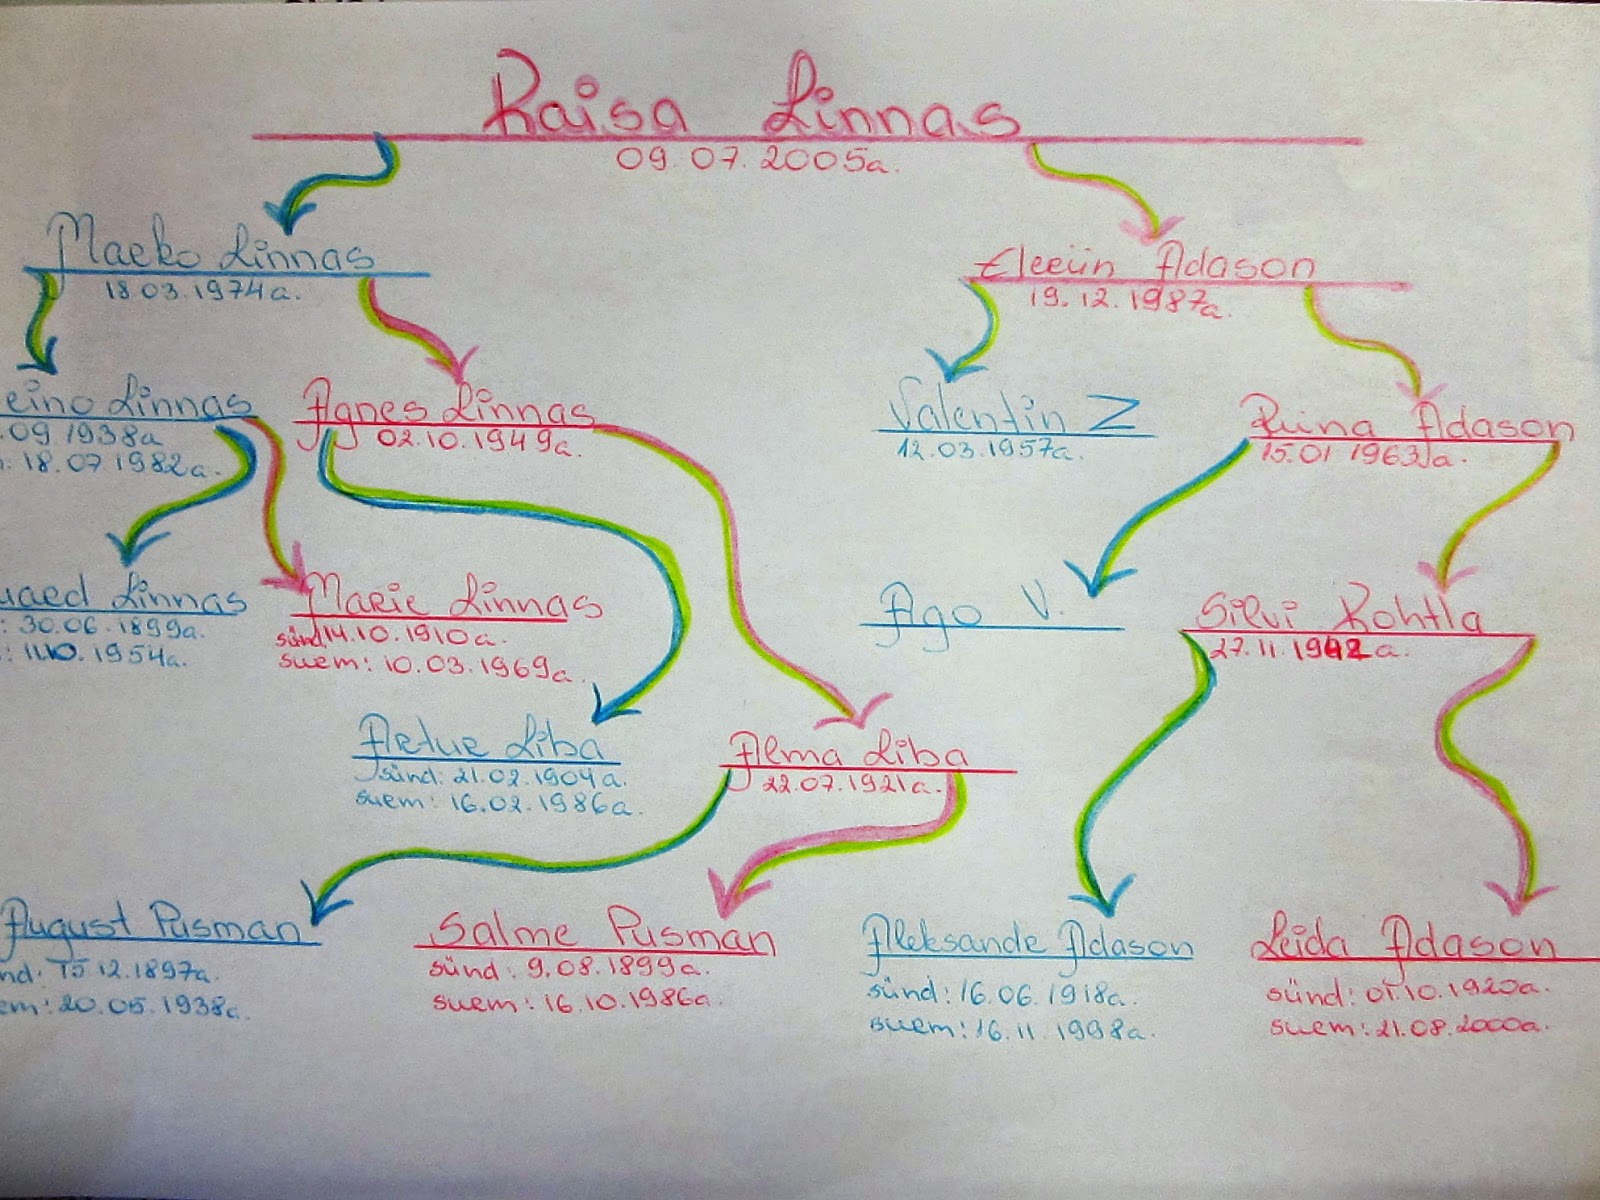 Raisa Linnas
09.07.2005a.
Marko Linnas
18.03.1974a.
Eleriin Adason
19.12.1987a.
eino Linnas
.09 1938a
: 18.07 1982a.
Agnes Linnas
02.10.1949a.
Valentin Z
12.03.1957a.
Riina Adason
15.01 1963a.
uard Linnas
: 30.06.1899a.
: 11.10.1954a.
Marie Linnas
sünd 14.10.1910a.
surm: 10.03.1969a.
Ago V.
Silvi Kohtla
27.11.1942a.
Artur Liba
sünd: 21.02.1904a.
surm: 16.02.1986a.
Alma Liba
22.07.1921a.
August Pusman
nd: 15.12.1897a.
rm: 20.05.1938a.
Salme Pusman
sünd: 9.08.1899a.
surm: 16.10.1986a.
Aleksande Adason
sünd: 16.06.1918a.
surm: 16.11.1998a.
Leida Adason
sünd: 01.10.1920a.
surm: 21.08.2000a.